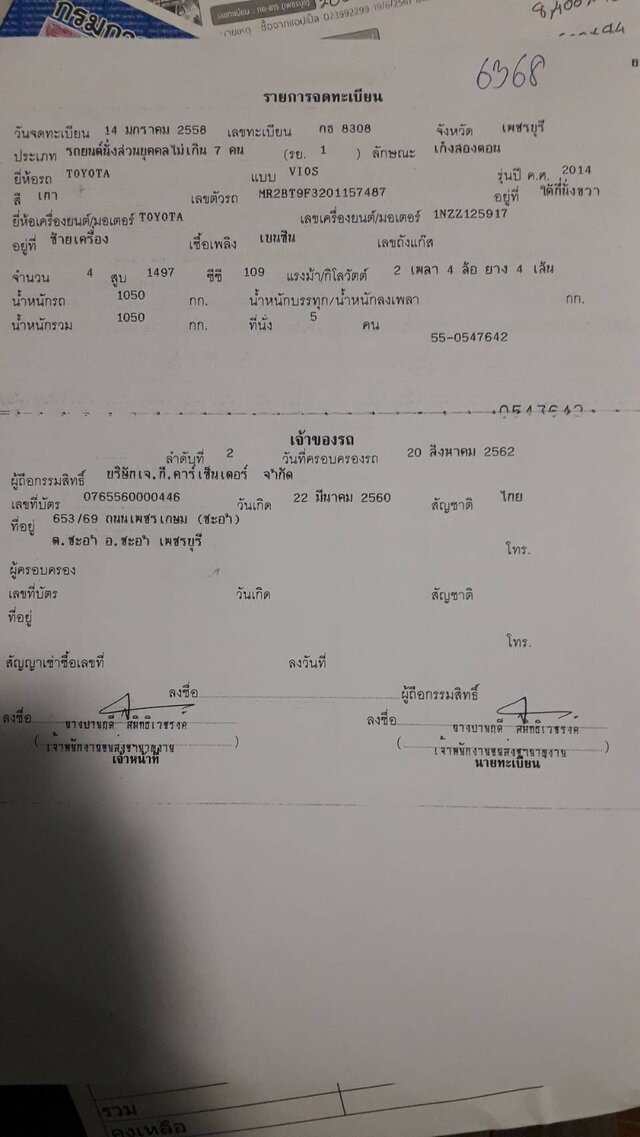 กรมกา
6368
รายการจดทะเบียน
วันจดทะเบียน 14 มกราคม 2558 เลขทะเบียน กธ 8308 จังหวัด เพชรบุรี
ประเภท รถยนต์นั่งส่วนบุคคลไม่เกิน 7 คน (รย. 1 ) ลักษณะ เก๋งสองตอน
ยี่ห้อรถ TOYOTA แบบ VIOS รุ่นปี ค.ศ. 2014
สี เทา เลขตัวรถ MR2BT9F3201157487 อยู่ที่ ใต้ที่นั่งขวา
ยี่ห้อเครื่องยนต์/มอเตอร์ TOYOTA เลขเครื่องยนต์/มอเตอร์ 1NZZ125917
อยู่ที่ ซ้ายเครื่อง เชื้อเพลิง เบนซิน เลขถังแก๊ส
จำนวน 4 สูบ 1497 ซีซี 109 แรงม้า/กิโลวัตต์ 2 เพลา 4 ล้อ ยาง 4 เส้น
น้ำหนักรถ 1050 กก. น้ำหนักบรรทุก/น้ำหนักลงเพลา กก.
น้ำหนักรวม 1050 กก. ที่นั่ง 5 คน
55-0547642
เจ้าของรถ
ลำดับที่ 2 วันที่ครอบครองรถ 20 สิงหาคม 2562
ผู้ถือกรรมสิทธิ์ บริษัทเจ.ที.คาร์เซ็นเตอร์ จำกัด
เลขที่บัตร 0765560000446 วันเกิด 22 มีนาคม 2560 สัญชาติ ไทย
ที่อยู่ 653/69 ถนนเพชรเกษม (ชะอำ)
ต.ชะอำ อ.ชะอำ เพชรบุรี
โทร.
ผู้ครอบครอง
เลขที่บัตร วันเกิด สัญชาติ
ที่อยู่
โทร.
สัญญาเช่าซื้อเลขที่ ลงวันที่
ลงชื่อ ผู้ถือกรรมสิทธิ์
ลงชื่อ ลงชื่อ
เจ้าหน้าที่ นายทะเบียน
รวม
คงเหลือ